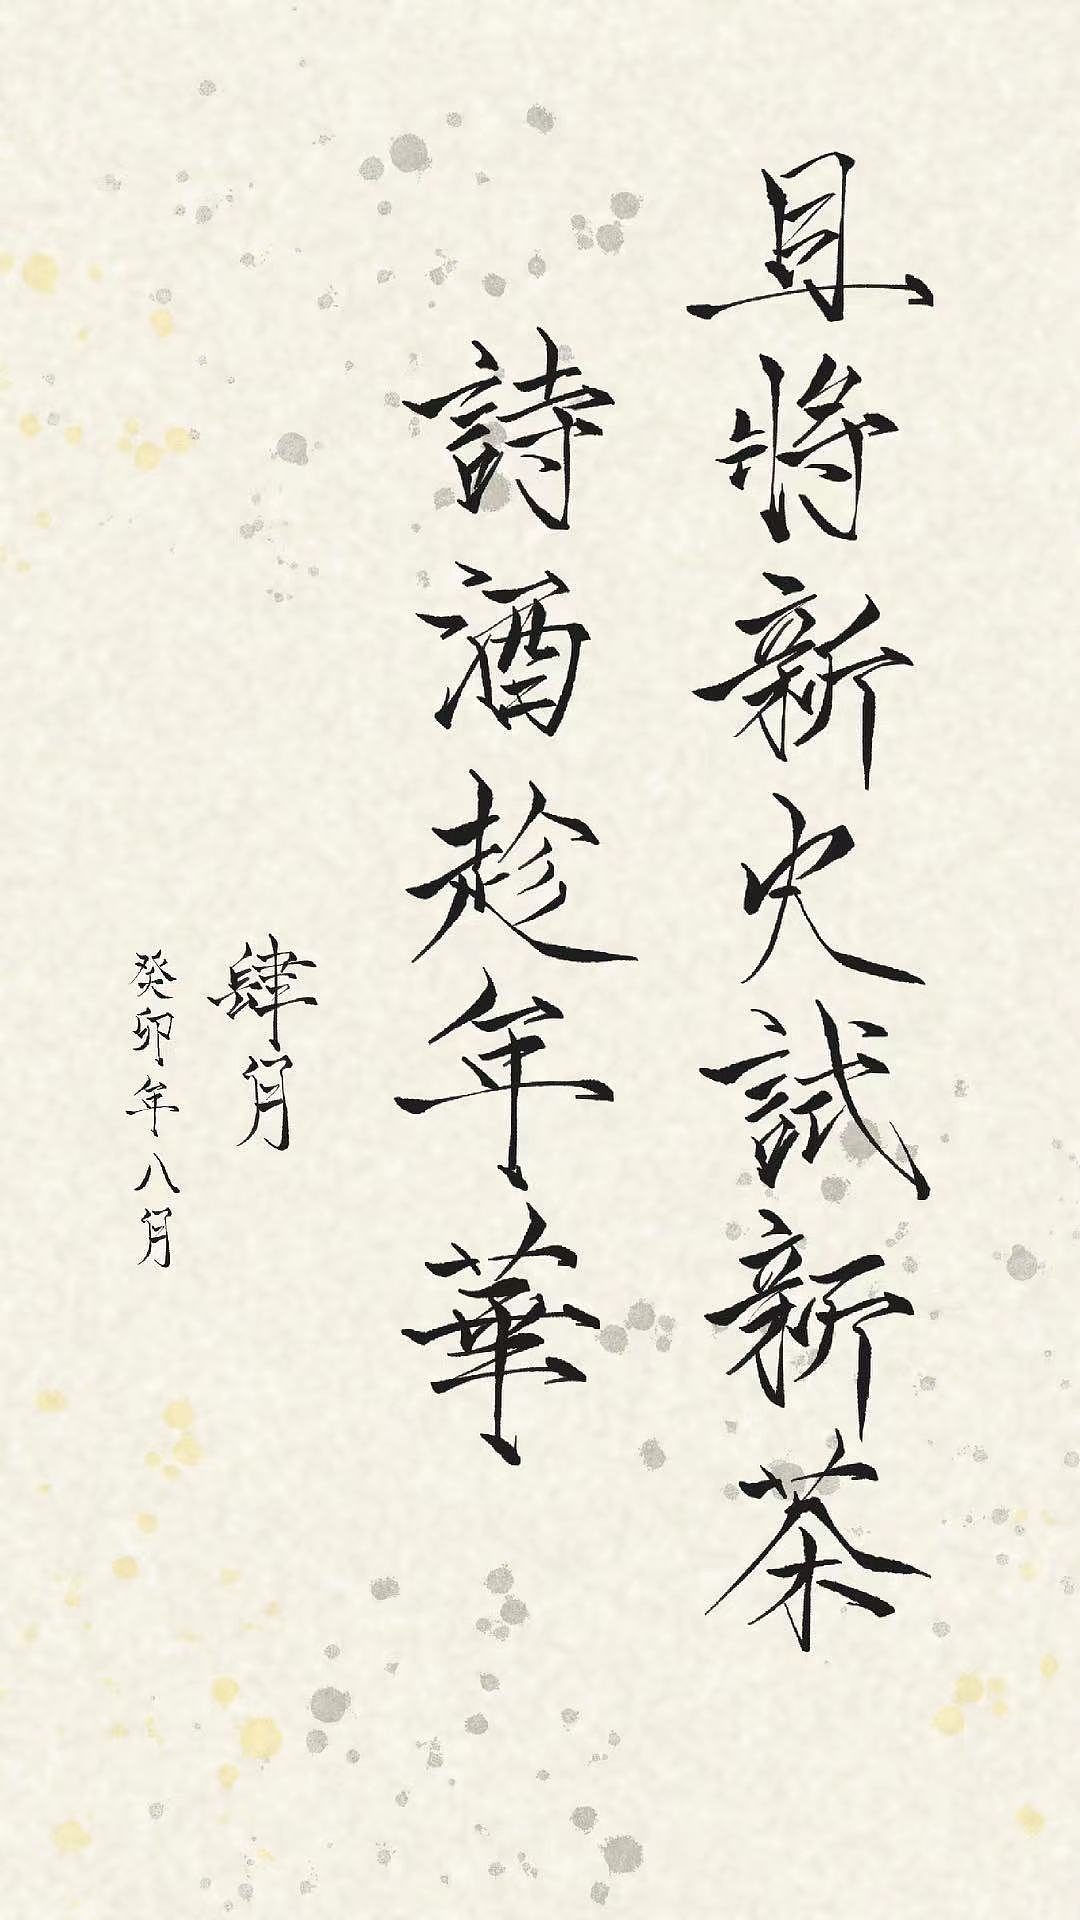 且將新火試新茶
詩酒趁年華
肆月
癸卯年八月